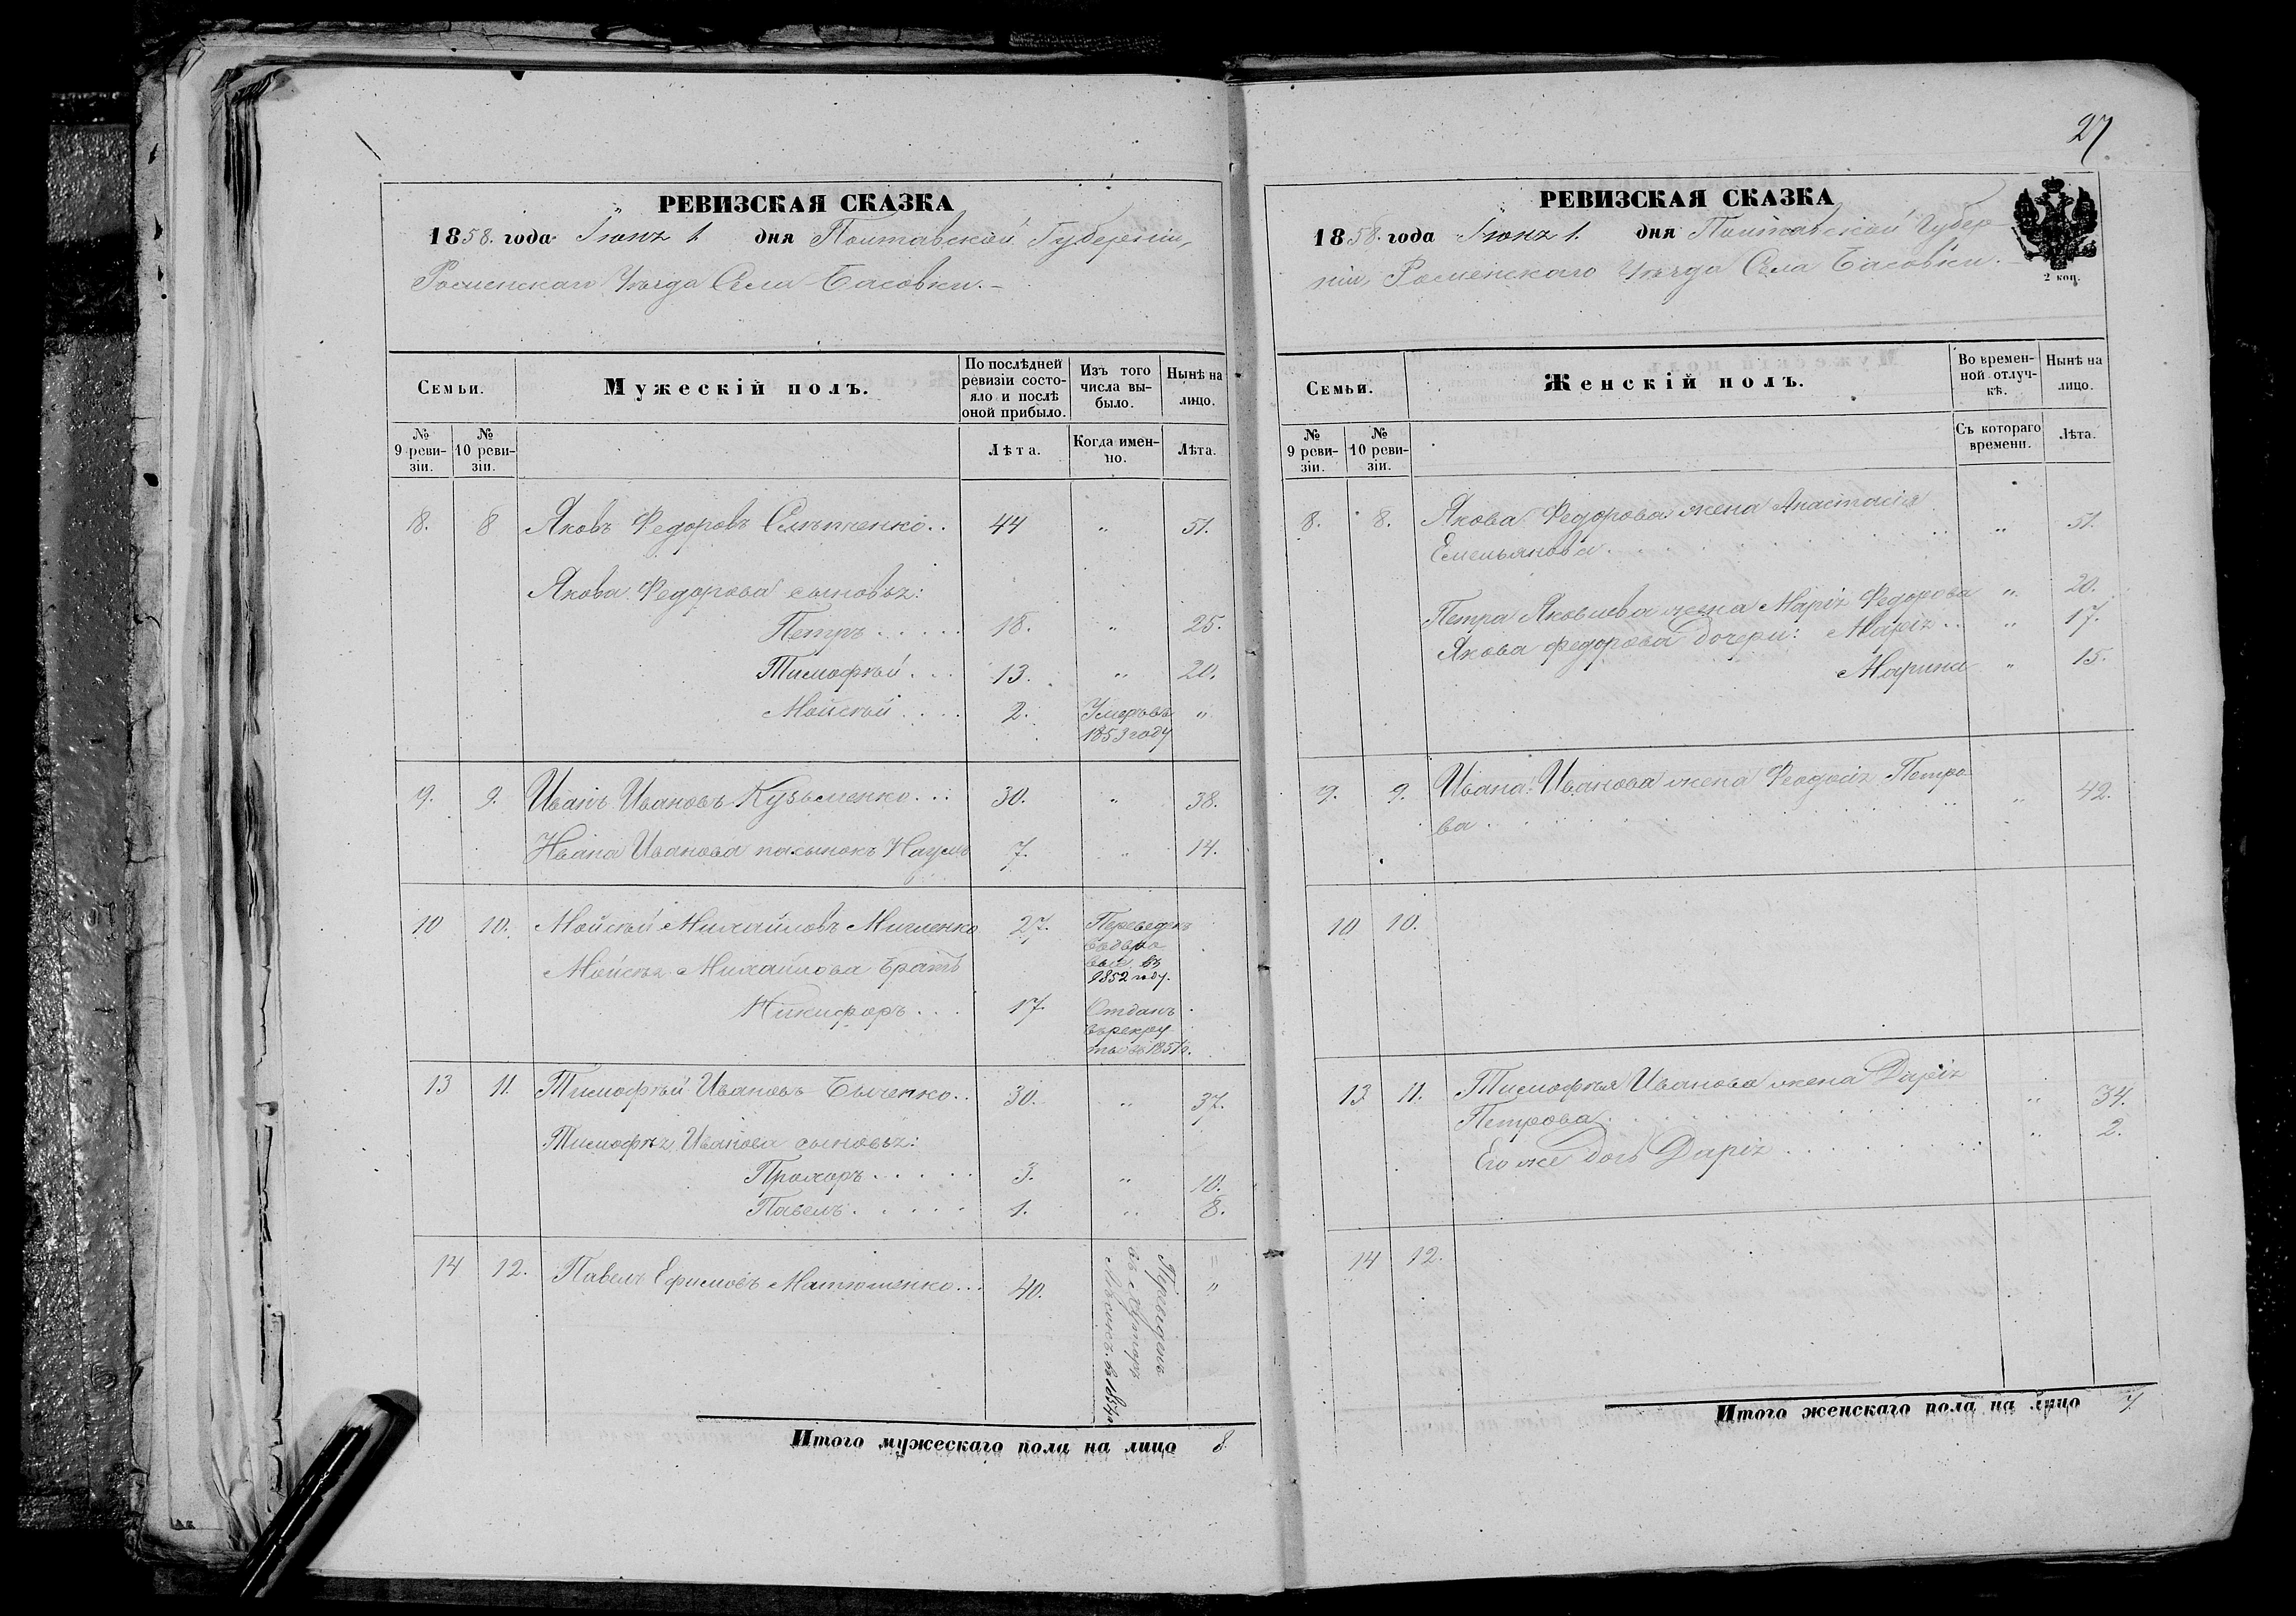 27
РЕВИЗСКАЯ СКАЗКА
1858. года Іюня 1. дня Полтавской Губерніи,
Роменскаго Уѣзда Села Басовки.
Семьи.
Мужескій полъ.
По послѣдней ревизіи состо-
яло и послѣ оной прибыло.
Изъ того числа вы-
было.
Нынѣ на лицо.
№ 9 реви-
зіи.
№ 10 реви-
зіи.
Лѣта.
Когда имен-
но.
Лѣта.
8. 8 Яковъ Федоровъ 44 " 51.
Якова Федорова сыновья:
Петръ 18. " 25.
Тимофѣй 13. " 20.
Мойсѣй 2. Умеръ въ "
1853 году
9. 9. Иванъ Ивановъ Кузьменко 30. " 38.
Ивана Иванова пасынокъ Наумъ 7. " 14.
10 10. Мойсѣй Михайловъ 27. Переведенъ
въ
1852 году.
Мойсѣя Михайлова братъ
Никифоръ 17. Отданъ
въ рекру
ты въ 1851 г.
13 11. Тимофѣй Ивановъ Быченко 30. " 37.
Тимофѣя Иванова сыновья:
Прохоръ 3. " 10.
Павелъ 1. " 8.
14 12. Павелъ Ефимовъ Матюшенко 40. "
Переведенъ
въ Хуторъ
Итого мужескаго пола на лицо 8
РЕВИЗСКАЯ СКАЗКА
1858. года Іюня 1. дня Полтавской Губер-
ніи, Роменскаго Уѣзда Села Басовки.
2 коп.
Семьи.
Женскій полъ.
Во времен-
ной отлуч-
кѣ.
Нынѣ на лицо.
№ 9 реви-
зіи.
№ 10 реви-
зіи.
Съ котораго времени.
Лѣта.
8. 8. Якова Федорова жена Анастасія
Емельянова " 51.
Петра Яковлева жена Марія Федорова " 20.
Якова Федорова дочери: Марія " 17.
Марина " 15.
9. 9. Ивана Иванова жена Феодосія Петро
ва " 42.
10 10.
13 11. Тимофѣя Иванова жена Дарія
Петрова " 34.
Его же дочь Дарія " 2.
14 12.
Итого женскаго пола на лицо 7.